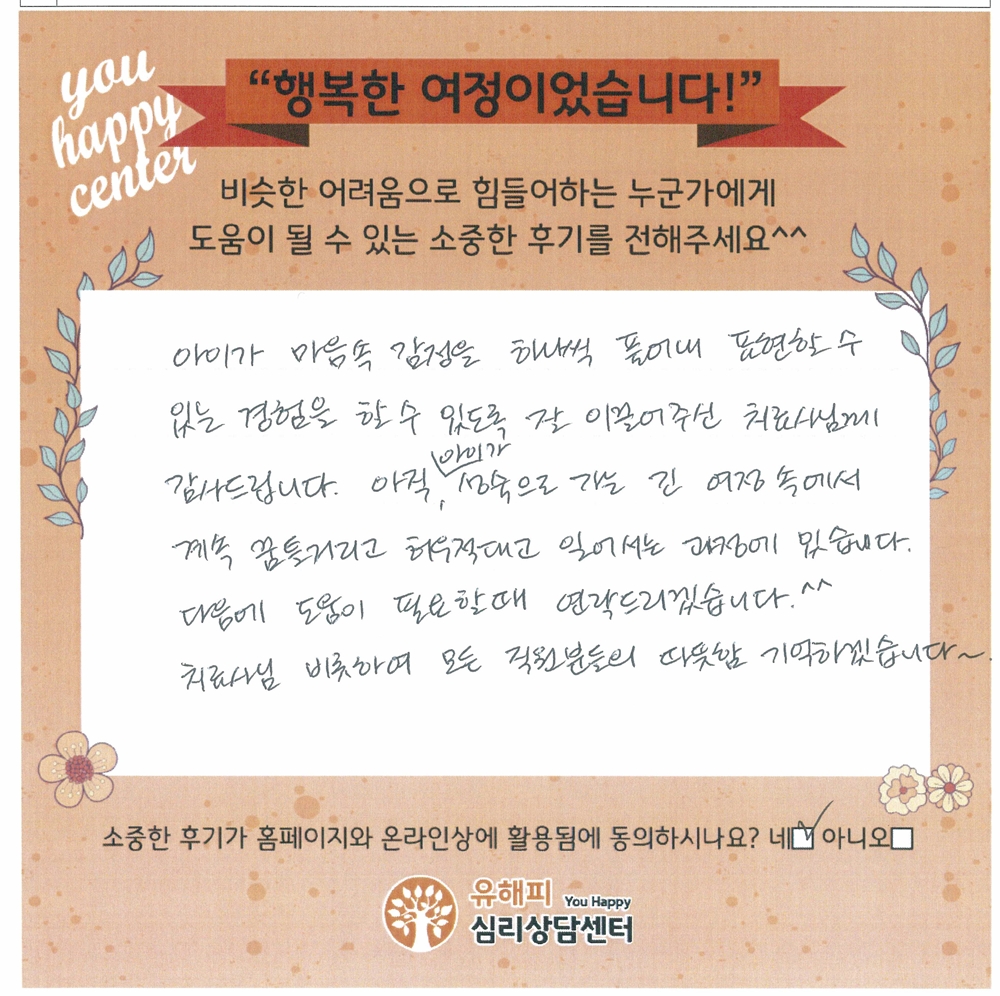 you
happy
center
“행복한 여정이었습니다!”
비슷한 어려움으로 힘들어하는 누군가에게
도움이 될 수 있는 소중한 후기를 전해주세요^^
아이가 마음속 감정을 하나씩 풀어내 표현할 수
있는 경험을 할 수 있도록 잘 이끌어주신 치료사님께
감사드립니다. 아직, 아이가 성숙으로 가는 긴 여정 속에서
계속 꿈틀거리고 허우적대고 일어서는 과정에 있습니다.
다음에 도움이 필요할때 연락드리겠습니다.^^
치료사님 비롯하여 모든 직원분들의 따뜻함 기억하겠습니다~.
소중한 후기가 홈페이지와 온라인상에 활용됨에 동의하시나요? 네 아니오
유해피 You Happy
심리상담센터